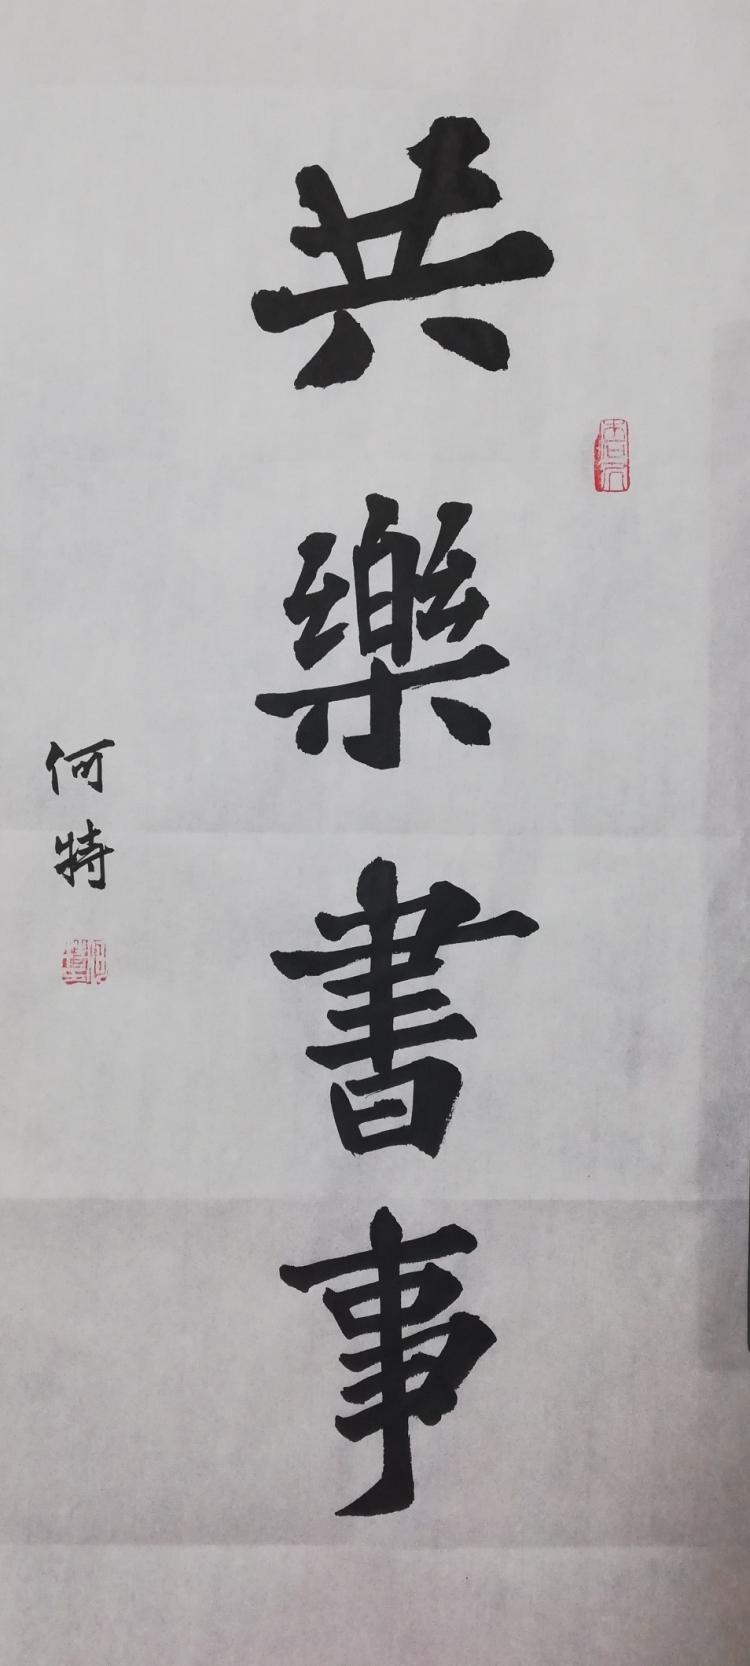 共樂書事
何特